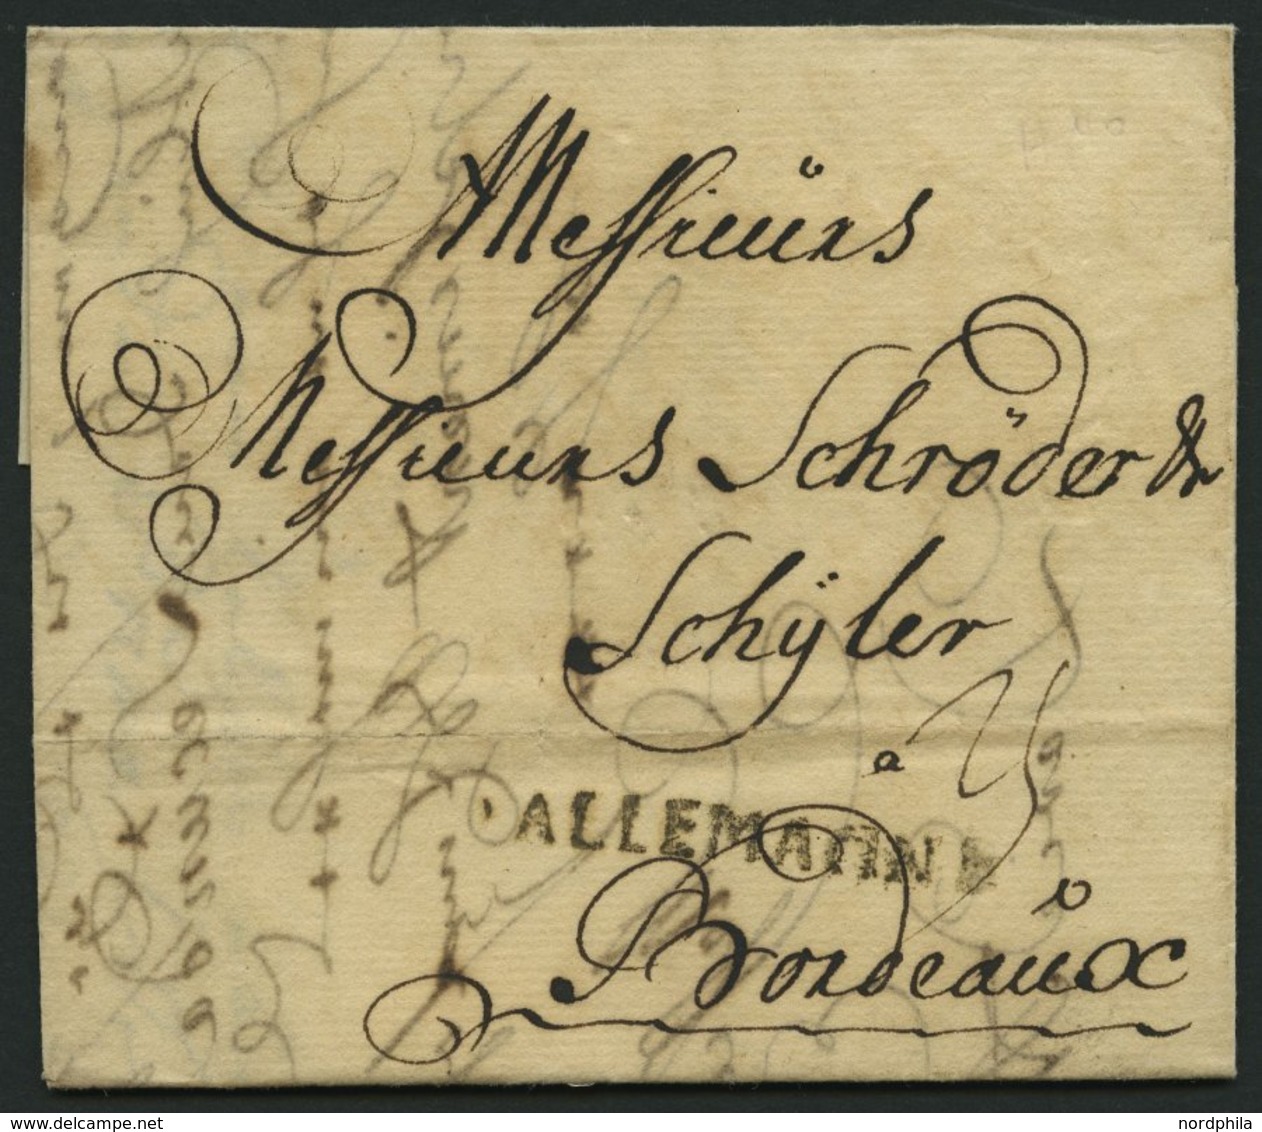 Messieürs
Messieurs Schröder &
Schÿler
a
ALLEMAGNE
Bordeaux
nordphila